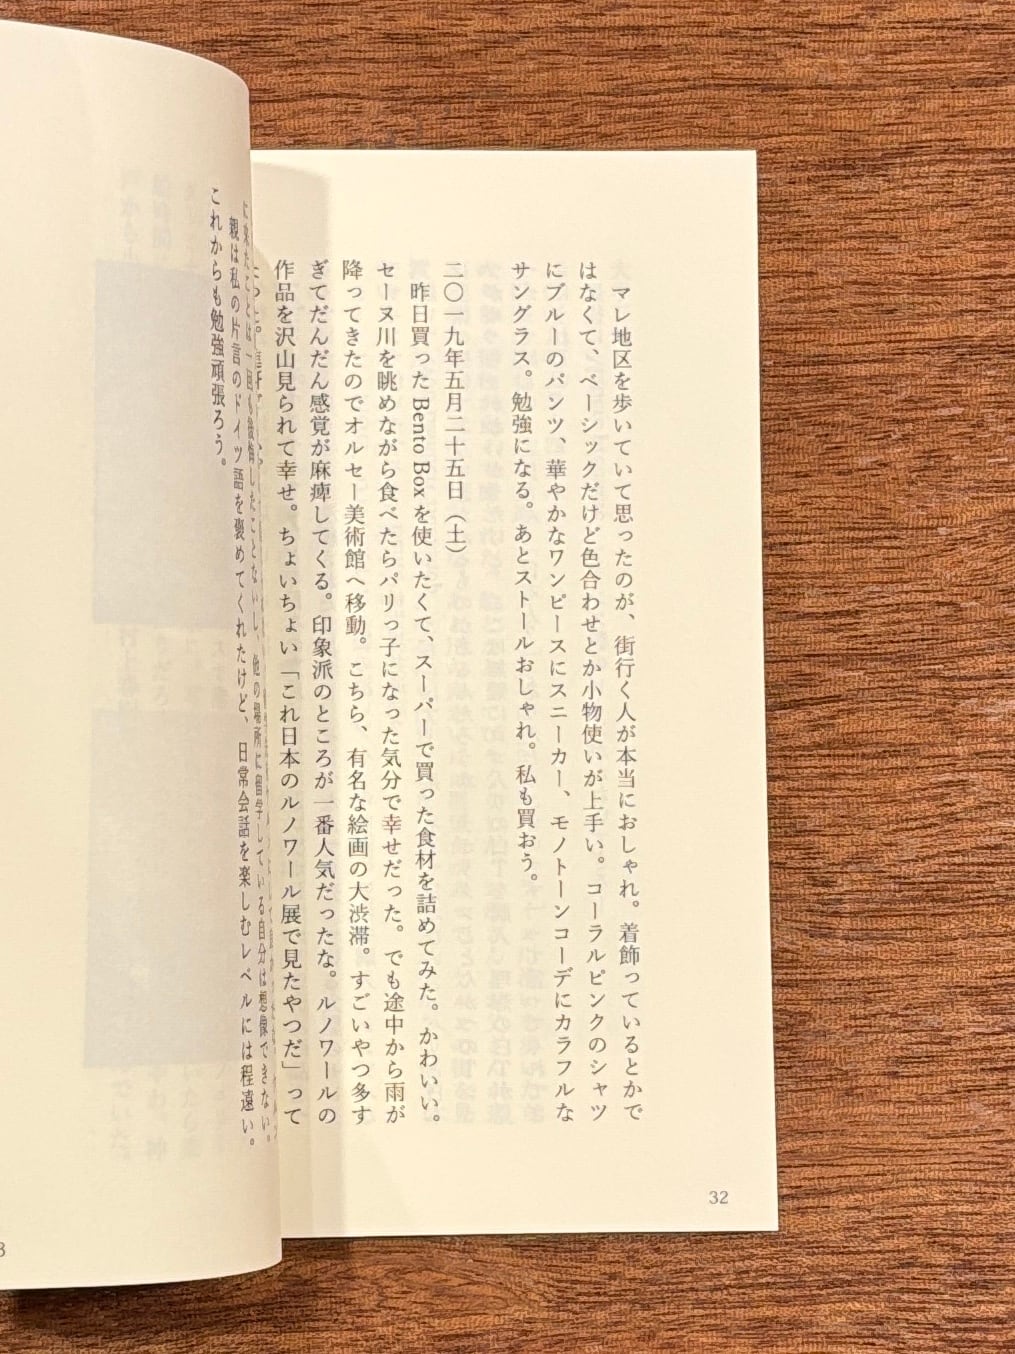 マレ地区を歩いていて思ったのが、街行く人が本当におしゃれ。着飾っているとかで
はなくて、ベーシックだけど色合わせとか小物使いが上手い。コーラルピンクのシャツ
にブルーのパンツ、華やかなワンピースにスニーカー、モノトーンコーデにカラフルな
サングラス。勉強になる。あとストールおしゃれ。私も買おう。
二〇一九年五月二十五日（土）
昨日買った Bento Box を使いたくて、スーパーで買った食材を詰めてみた。かわいい。
セーヌ川を眺めながら食べたらパリっ子になった気分で幸せだった。でも途中から雨が
降ってきたのでオルセー美術館へ移動。こちら、有名な絵画の大渋滞。すごいやつ多す
ぎてだんだん感覚が麻痺してくる。印象派のところが一番人気だったな。ルノワールの
作品を沢山見られて幸せ。ちょいちょい「これ日本のルノワール展で見たやつだ」って
に来たことは一回も後悔したことないし、他の場所に留学している自分は想像できない。
親は私の片言のドイツ語を褒めてくれたけど、日常会話を楽しむレベルには程遠い。
これからも勉強頑張ろう。
32